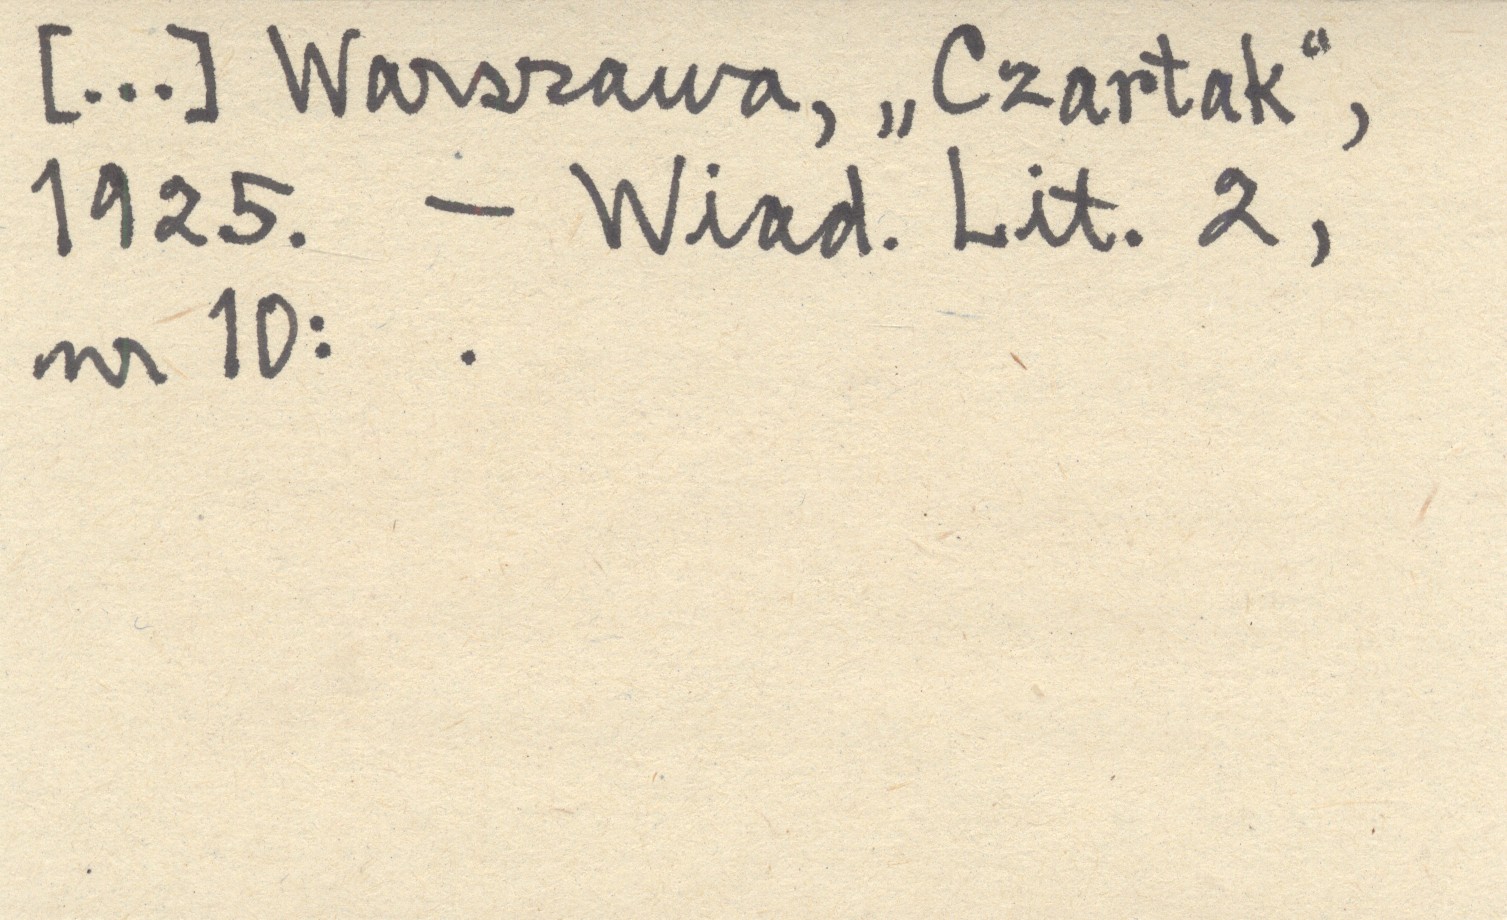 [...] Warszawa, „Czartak“,
1925. — Wiad. Lit. 2,
nr 10: .